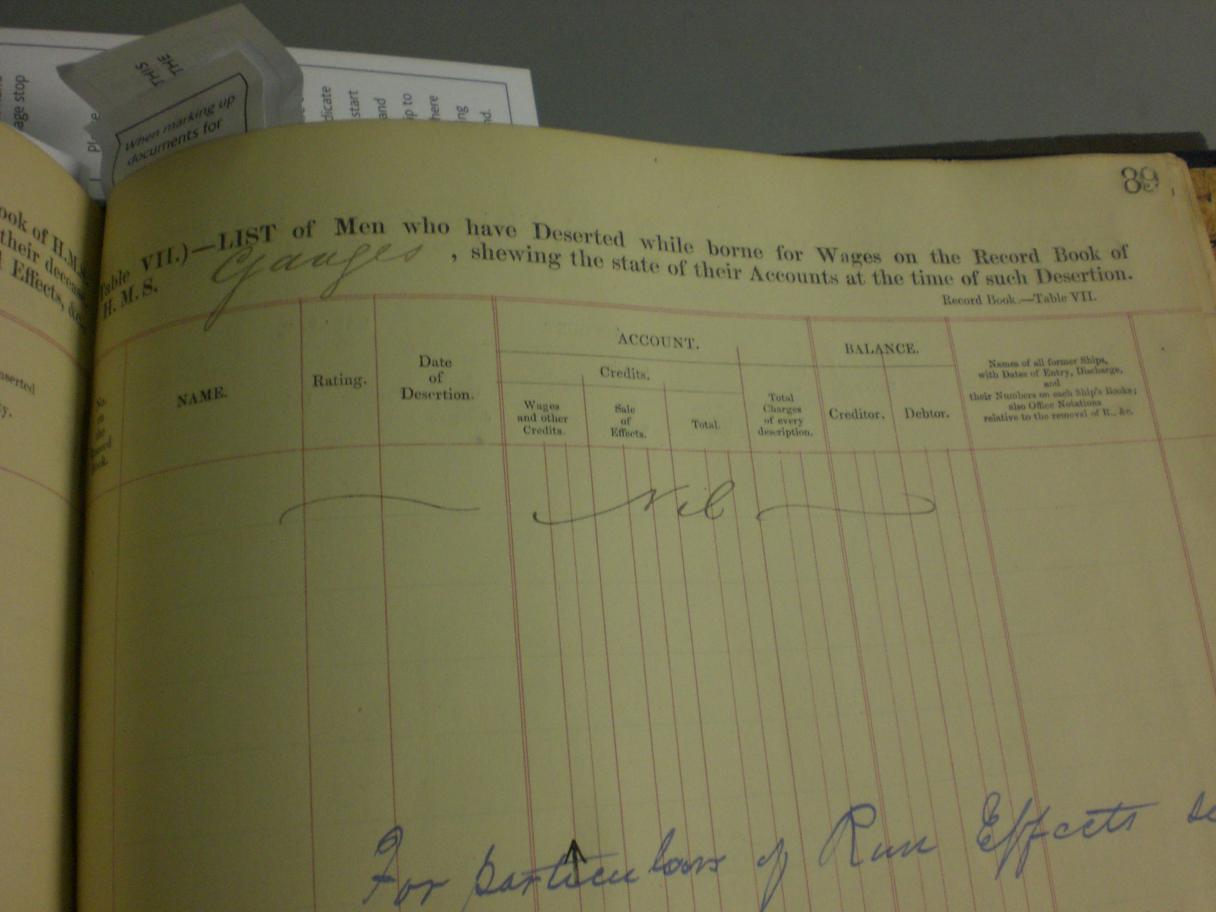 age stop
THIS
THE
When marking up
documents for
dicate
start
and
ip to
here
ng
nd.
89
ook of H.M.
their decease
Effects, &c.
nserted
y.
Table VII.)—LIST of Men who have Deserted while borne for Wages on the Record Book of
H.M.S. Ganges, shewing the state of their Accounts at the time of such Desertion.
Record Book.—Table VII.
No.
on
the
Record
Book.
NAME.
Rating.
Date
of
Desertion.
ACCOUNT.
Credits.
Wages
and other
Credits.
Sale
of
Effects.
Total.
Total
Charges
of every
description.
BALANCE.
Creditor.
Debtor.
Names of all former Ships,
with Dates of Entry, Discharge,
and
their Numbers on each Ship's Books;
also Office Notations
relative to the removal of R., &c.
Nil
For particulars of Run Effects se